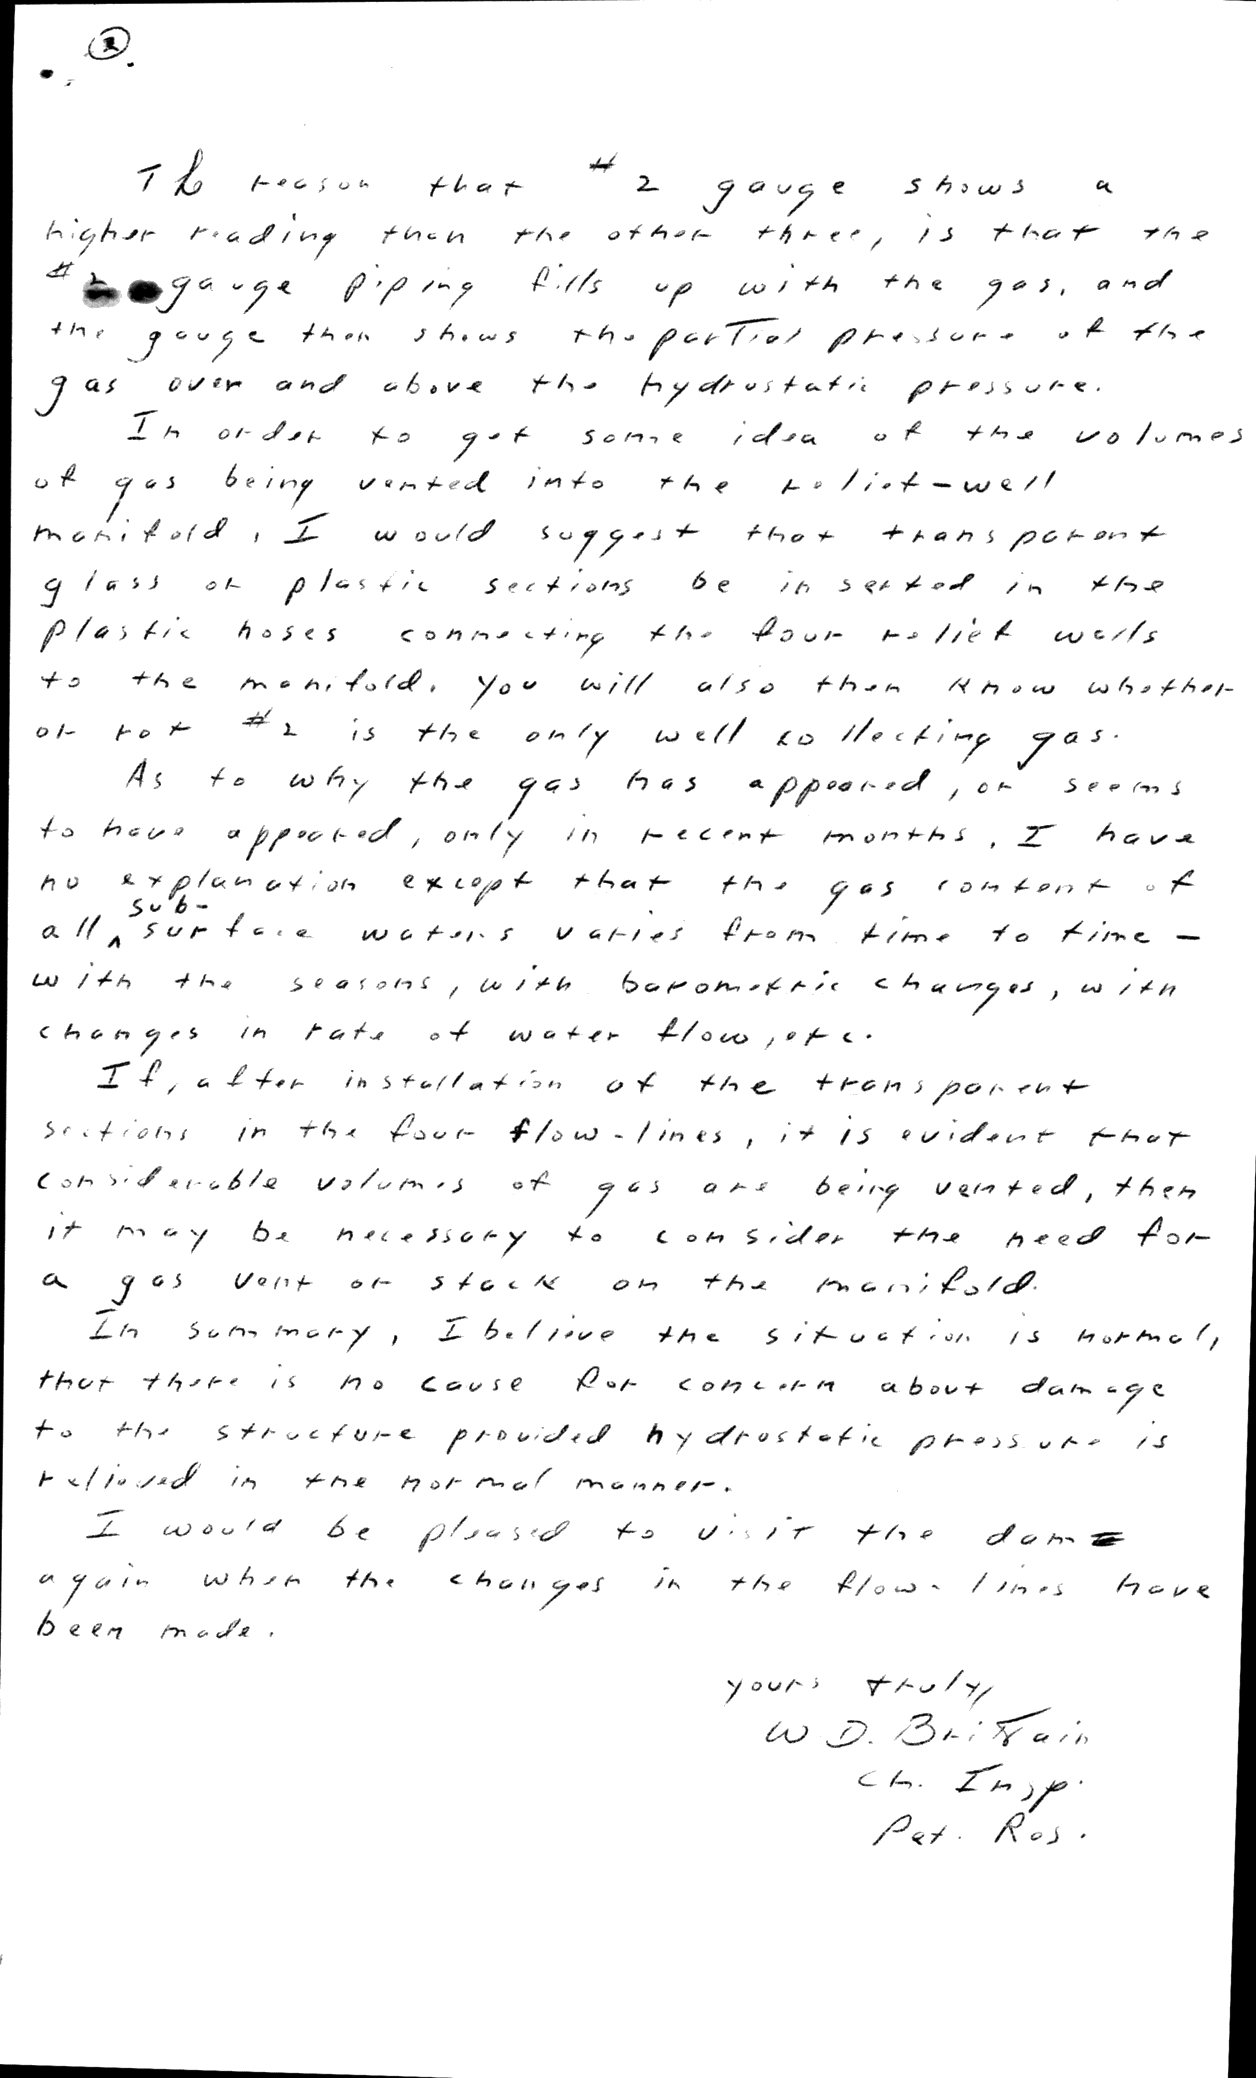 2
The reason that #2 gauge shows a
higher reading than the other three, is that the
#2 gauge piping fills up with the gas, and
the gauge then shows the partial pressure of the
gas over and above the hydrostatic pressure.
In order to get some idea of the volumes
of gas being vented into the relief-well
manifold, I would suggest that transparent
glass or plastic sections be inserted in the
plastic hoses connecting the four relief wells
to the manifold. You will also then know whether
or not #2 is the only well collecting gas.
As to why the gas has appeared, or seems
to have appeared, only in recent months, I have
no explanation except that the gas content of
sub-
all ^ surface waters varies from time to time -
with the seasons, with barometric changes, with
changes in rate of water flow, etc.
If, after installation of the transparent
sections in the four flow-lines, it is evident that
considerable volumes of gas are being vented, then
it may be necessary to consider the need for
a gas vent or stack on the manifold.
In summary, I believe the situation is normal,
that there is no cause for concern about damage
to the structure provided hydrostatic pressure is
relieved in the normal manner.
I would be pleased to visit the dam
again when the changes in the flow-lines have
been made.
yours truly,
W D. Brittain
Ch. Insp.
Pet. Res.